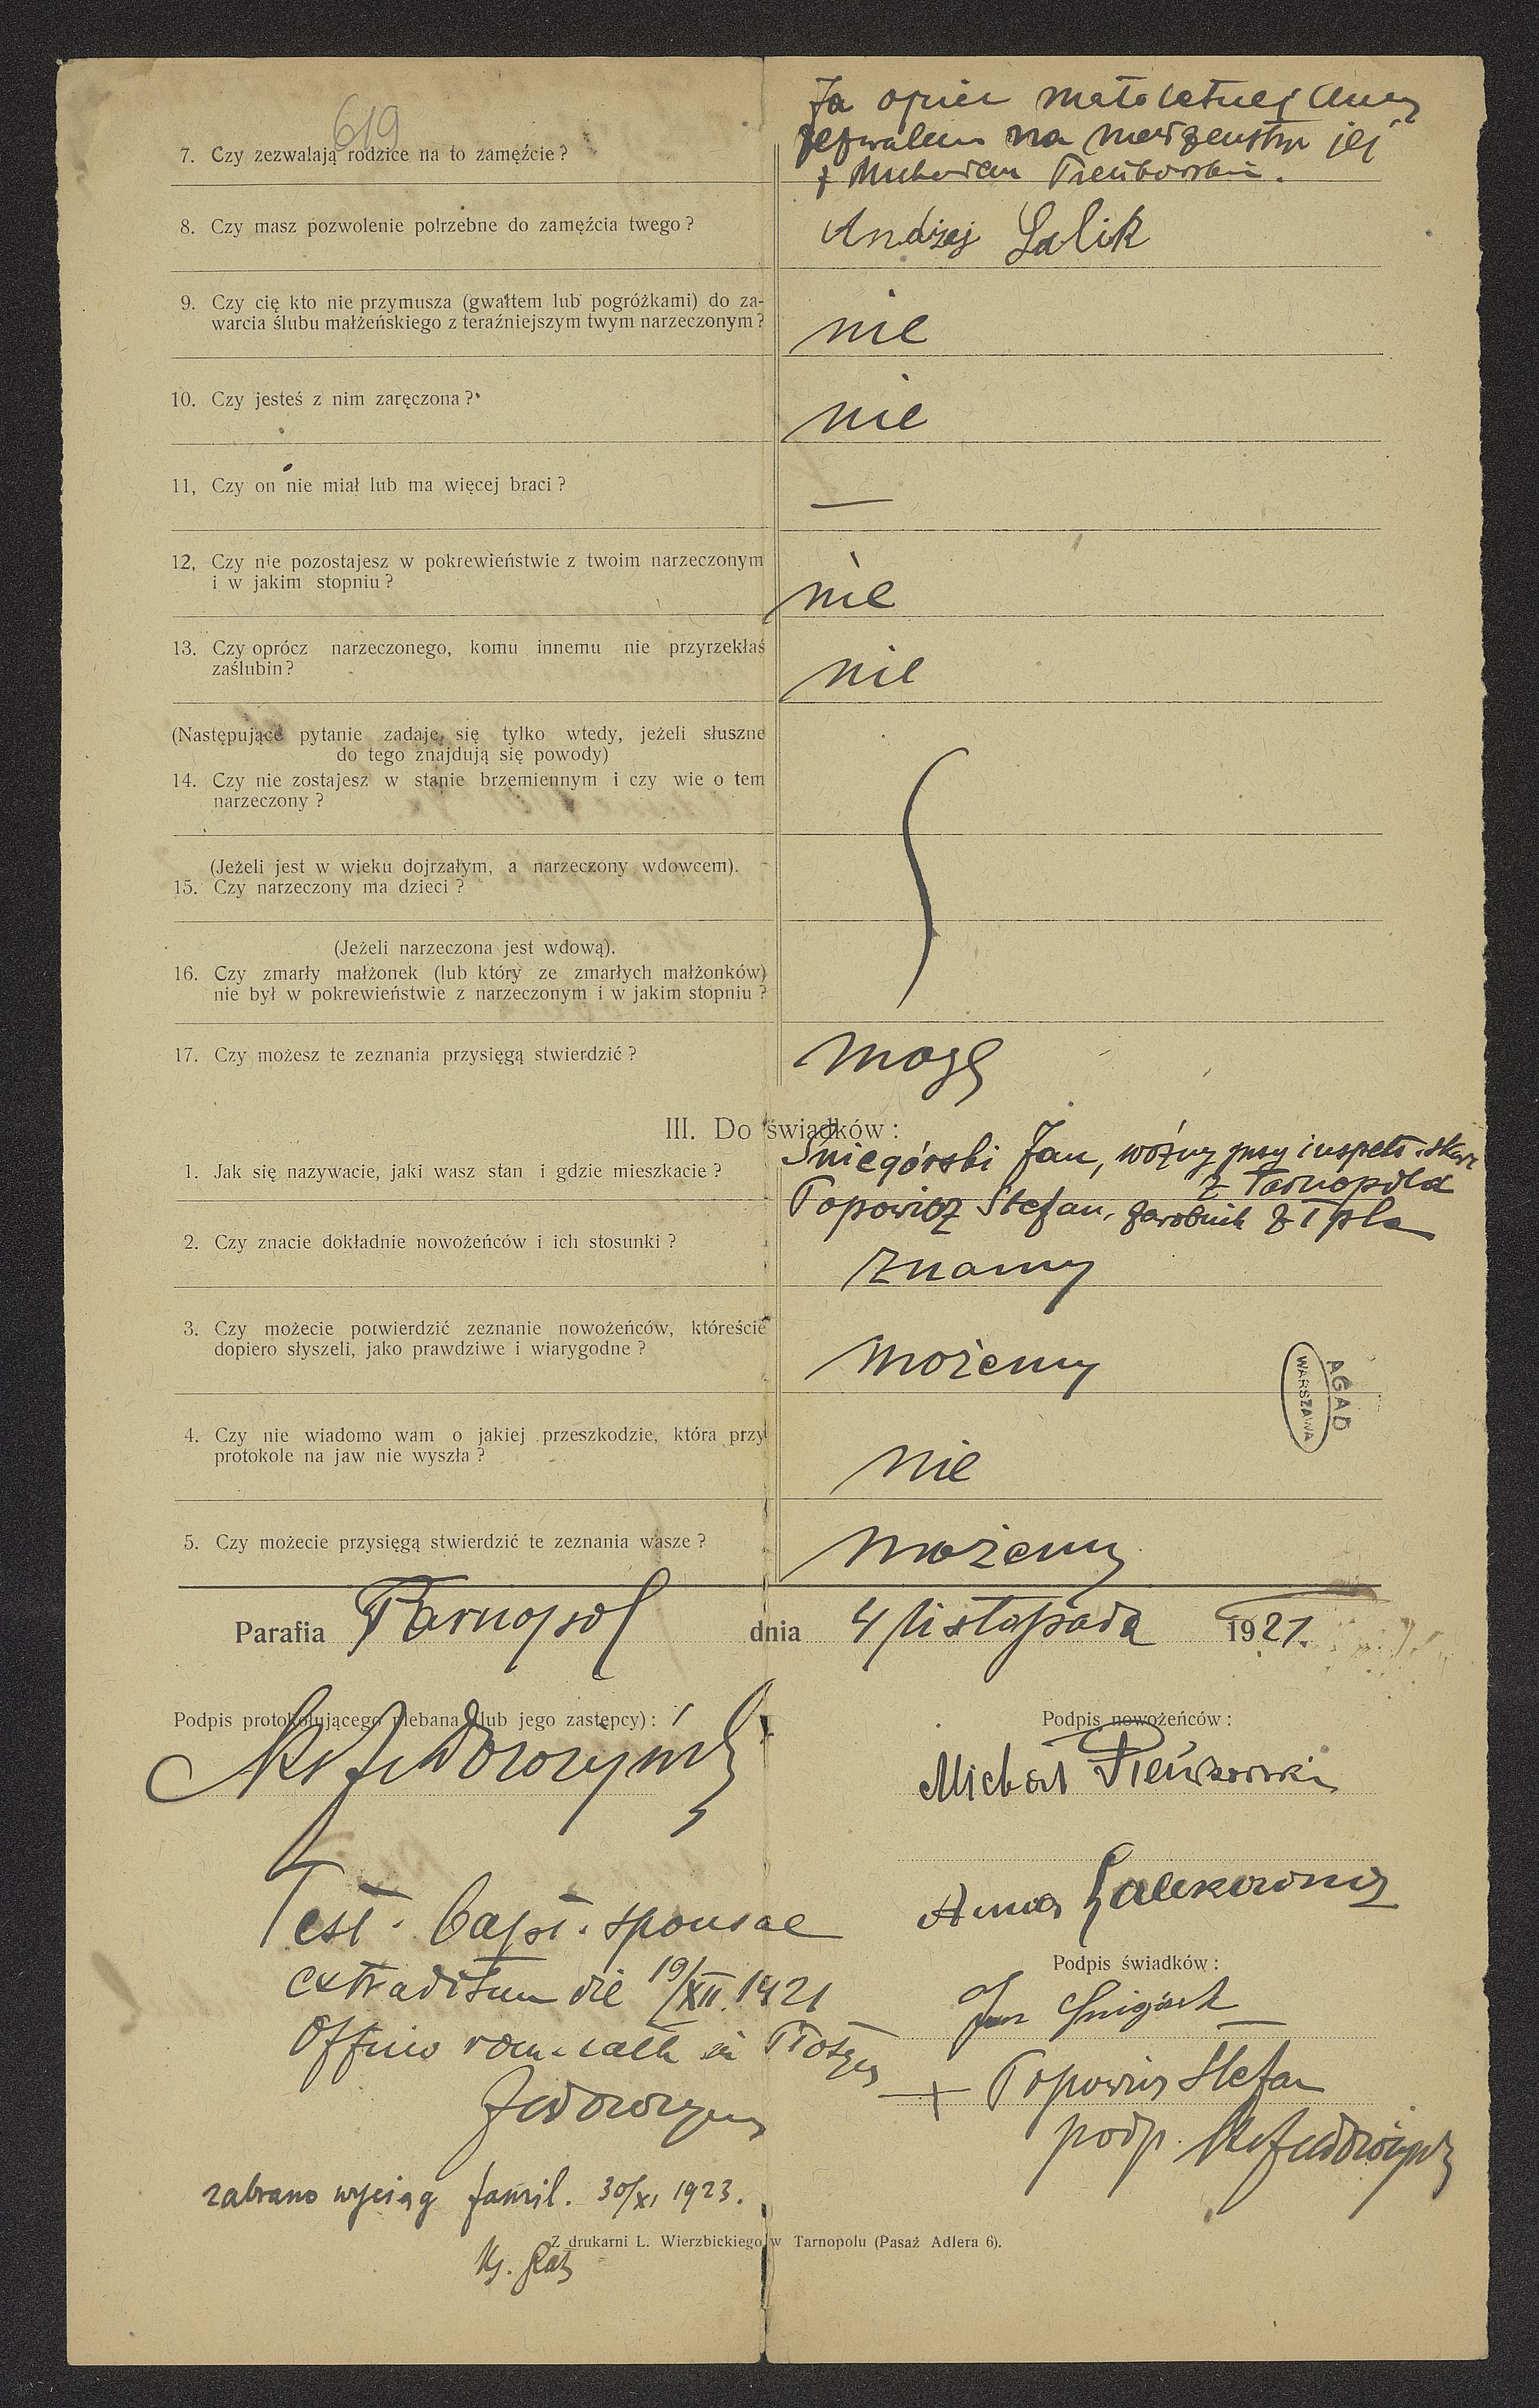 619
Ja opiek małoletniej Anny
zezwalam na małżeństwo jej
z Michałem
7. Czy zezwalają rodzice na to zamęźcie?
8. Czy masz pozwolenie potrzebne do zamęźcia twego?
Andżej Salik
9. Czy cię kto nie przymusza (gwałtem lub pogróżkami) do za-
warcia ślubu małżeńskiego z teraźniejszym twym narzeczonym?
nie
10. Czy jesteś z nim zaręczona?
nie
11, Czy on nie miał lub ma więcej braci?
—
12, Czy nie pozostajesz w pokrewieństwie z twoim narzeczonym
i w jakim stopniu?
nie
13. Czy oprócz narzeczonego, komu innemu nie przyrzekłaś
zaślubin?
nie
(Następujące pytanie zadaje się tylko wtedy, jeżeli słuszne
do tego znajdują się powody)
14. Czy nie zostajesz w stanie brzemiennym i czy wie o tem
narzeczony?
(Jeżeli jest w wieku dojrzałym, a narzeczony wdowcem).
15. Czy narzeczony ma dzieci?
(Jeżeli narzeczona jest wdową).
16. Czy zmarły małżonek (lub który ze zmarłych małżonków)
nie był w pokrewieństwie z narzeczonym i w jakim stopniu?
17. Czy możesz te zeznania przysięgą stwierdzić?
mogę
III. Do świadków:
1. Jak się nazywacie, jaki wasz stan i gdzie mieszkacie?
Śniegórski Jan, woźny przy inspekt. skar
z Tarnopola
Popowicz Stefan, zarobnik z Tpla
2. Czy znacie dokładnie nowożeńców i ich stosunki?
znamy
3. Czy możecie potwierdzić zeznanie nowożeńców, któreście
dopiero słyszeli, jako prawdziwe i wiarygodne?
możemy
AGAD
WARSZAWA
4. Czy nie wiadomo wam o jakiej przeszkodzie, która przy
protokole na jaw nie wyszła?
nie
5. Czy możecie przysięgą stwierdzić te zeznania wasze?
możemy
Parafia Tarnopol dnia 4 listopada 1921.
Podpis protokołującego plebana (lub jego zastępcy):
Podpis nowożeńców:
Michał
Anna
Test. bapt. sponsae
extraditum die 19/XII. 1921
Officio rom. cath in
Podpis świadków:
Jan
+ Popowicz Stefan
podp.
zabrano wyciąg famil. 30/XI 1923.
Z drukarni L. Wierzbickiego w Tarnopolu (Pasaż Adlera 6).